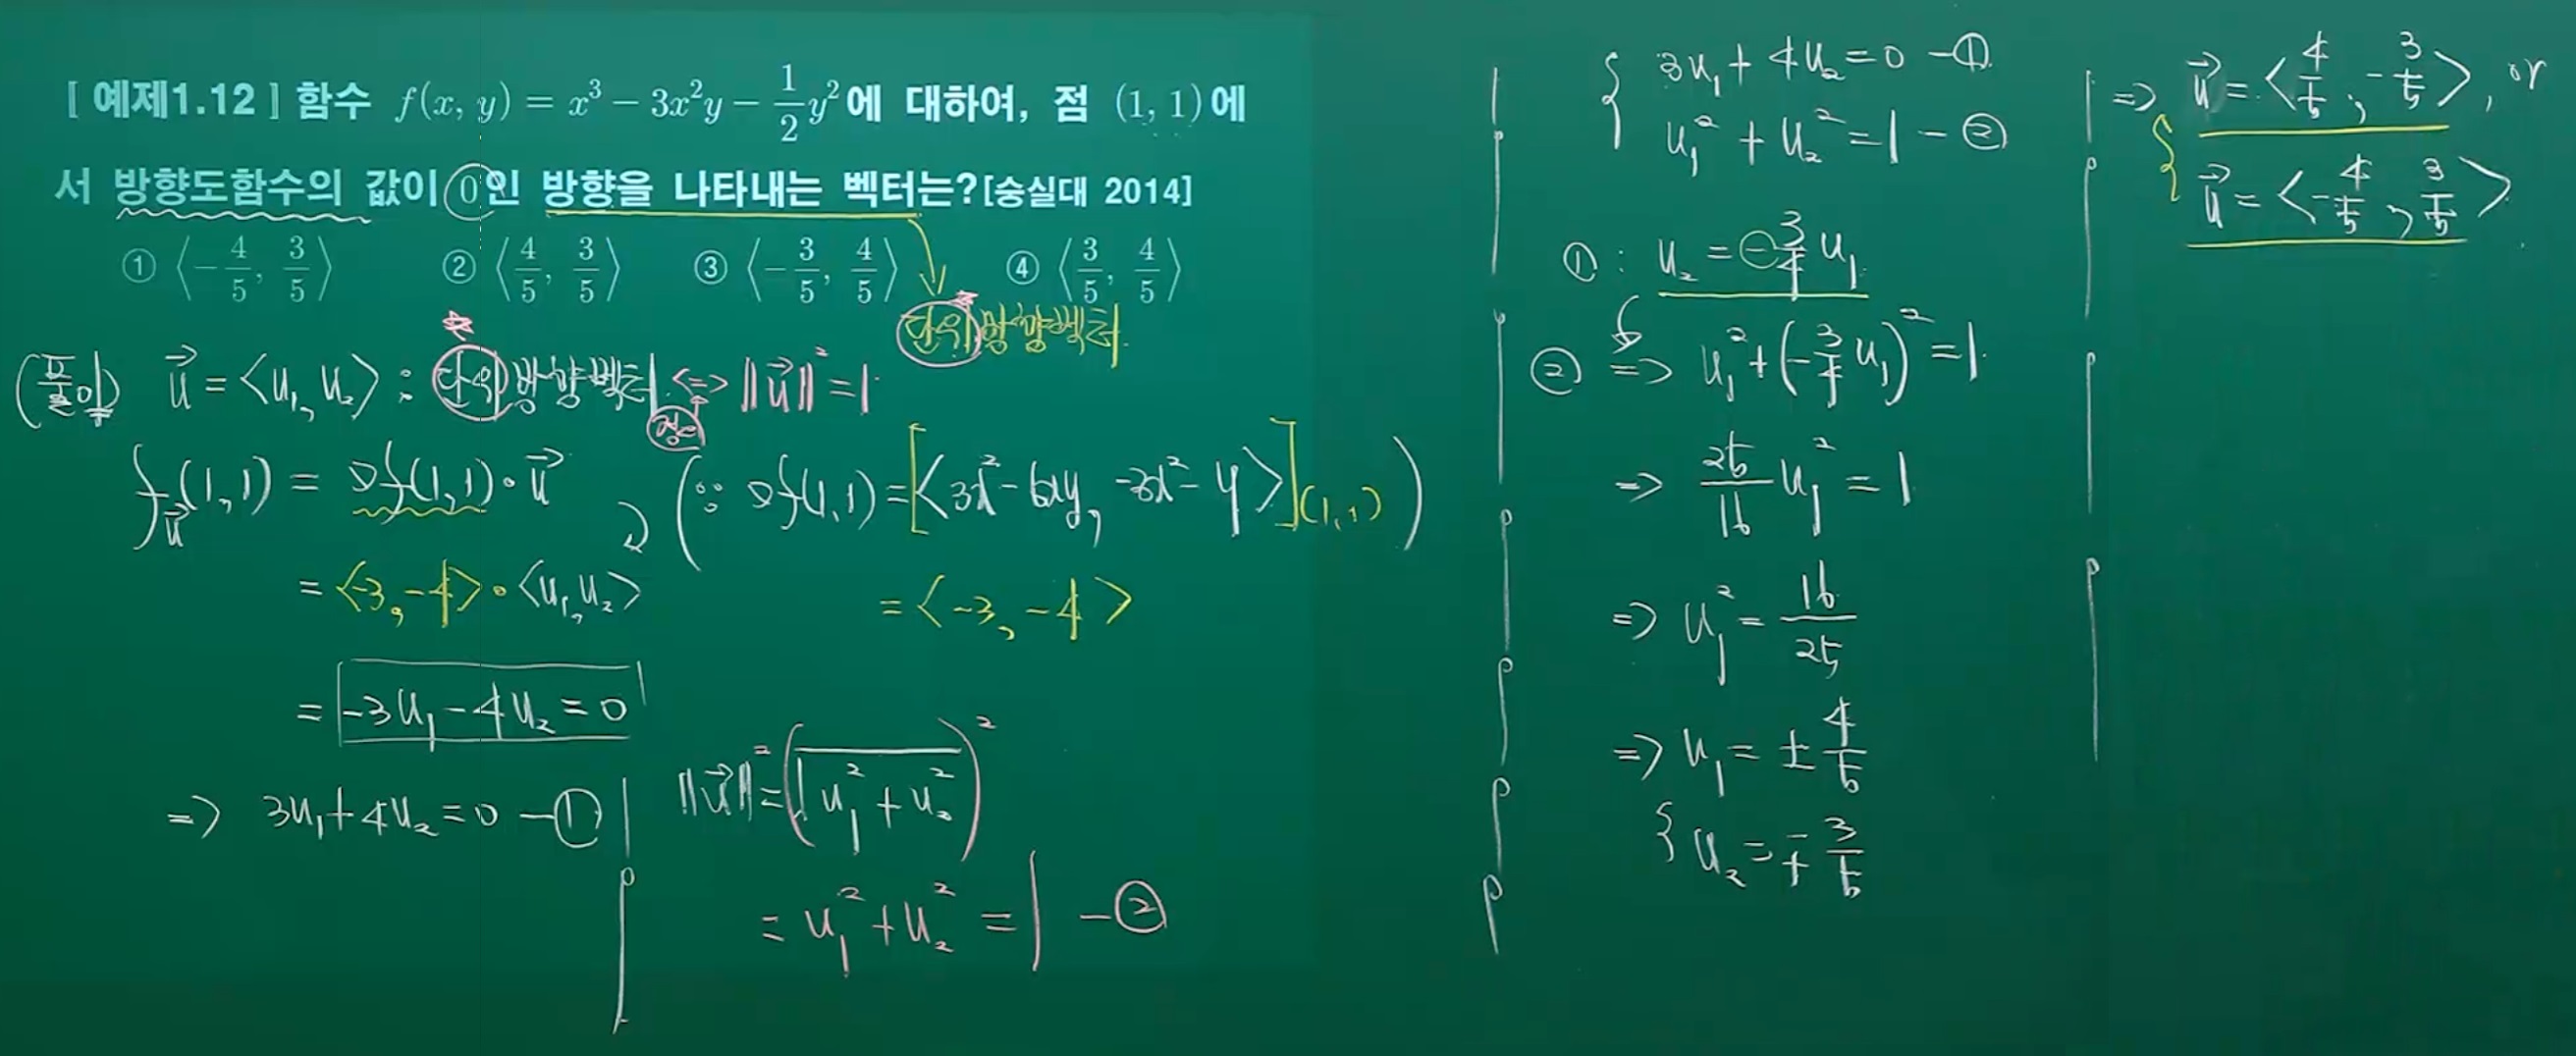 [ 예제1.12 ] 함수 f(x, y) = x³ − 3x²y − 1/2 y² 에 대하여, 점 (1, 1)에
서 방향도함수의 값이 0인 방향을 나타내는 벡터는? [숭실대 2014]
① ⟨−4/5, 3/5⟩ ② ⟨4/5, 3/5⟩ ③ ⟨−3/5, 4/5⟩ ④ ⟨3/5, 4/5⟩
단위방향벡터
(풀이) u⃗ = <u₁, u₂> : 단위방향벡터 <=> ‖u⃗‖² = 1
f_u⃗(1,1) = ∇f(1,1)·u⃗ (∵ ∇f(1,1) = [<3x²−6xy, −3x²−y>](1,1))
= <−3, −4>·<u₁, u₂> = <−3, −4>
= −3u₁−4u₂=0
=> 3u₁+4u₂=0 −①
‖u⃗‖² = (√u₁²+u₂²)²
= u₁²+u₂² = 1 −②
3u₁+4u₂=0 −①
u₁²+u₂²=1 −②
① : u₂ = −3/4 u₁
② => u₁²+(−3/4 u₁)²=1
=> 25/16 u₁² = 1
=> u₁² = 16/25
=> u₁ = ±4/5
u₂ = ∓3/5
=> u⃗ = <4/5, −3/5>, or
u⃗ = <−4/5, 3/5>